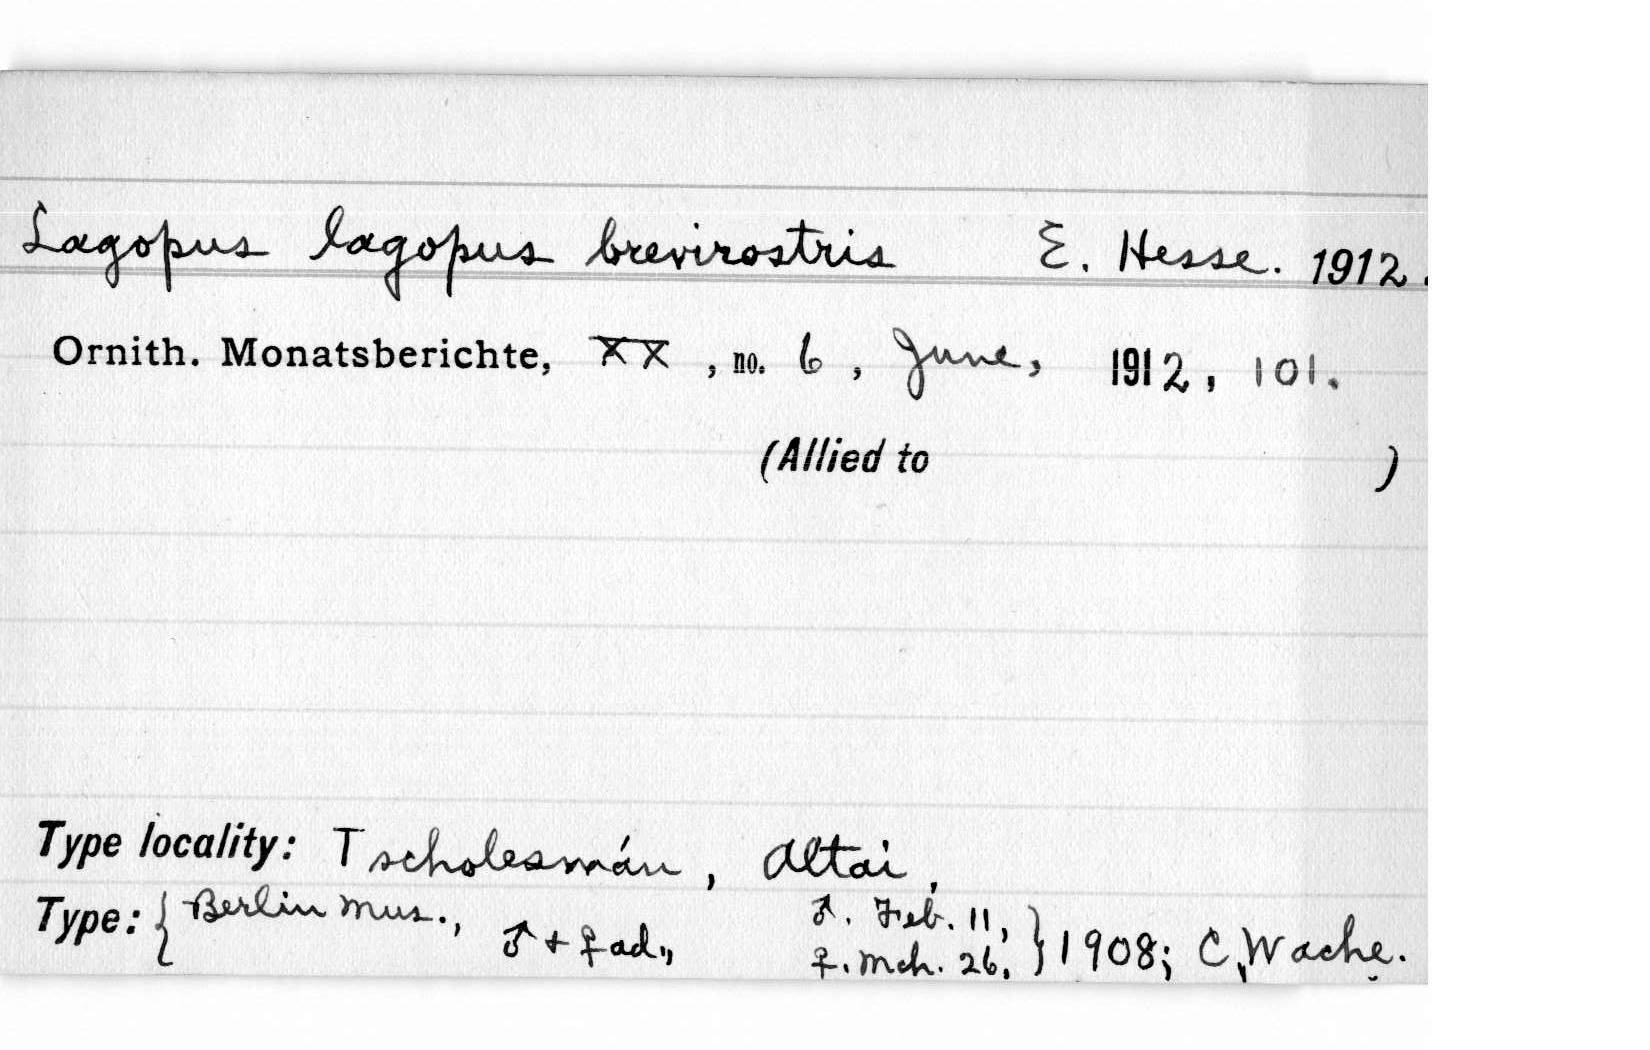 Lagopus lagopus brevirostris E. Hesse. 1912.
Ornith. Monatsberichte, XX, no. 6, June, 1912, 101.
(Allied to )
Type locality: Tscholesmán, Altai,
Type: { Berlin Mus., ♂ + ♀ ad., ♂. Feb. 11, ♀. Mch. 26, } 1908; C. Wache.